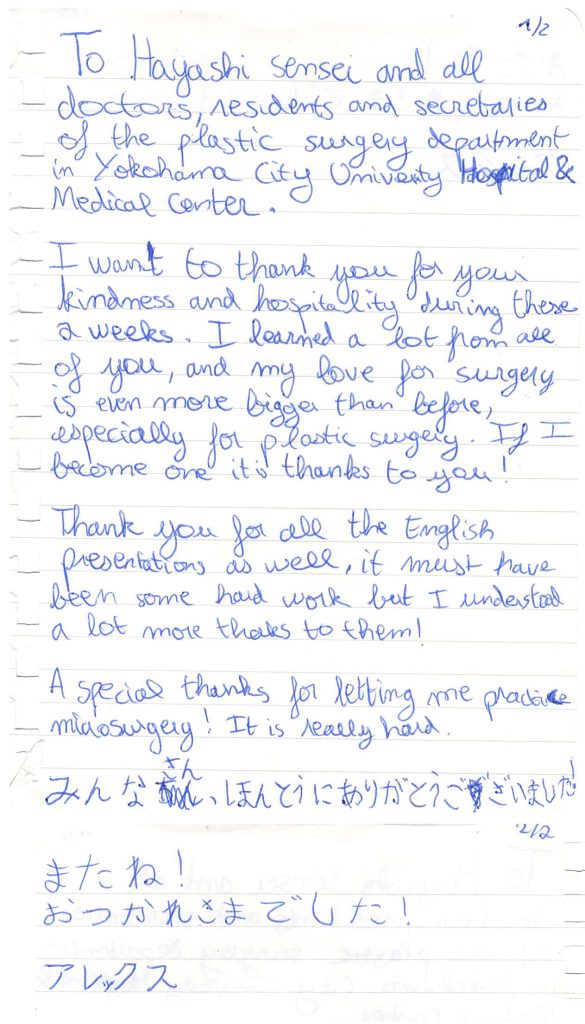 1/2
To Hayashi sensei and all
doctors, residents and secretaries
of the plastic surgery department
in Yokohama City Univerity Hospital &
Medical Center.
I want to thank you for your
kindness and hospitality during these
2 weeks. I learned a lot from all
of you, and my love for surgery
is even more bigger than before,
especially for plastic surgery. If I
become one it is thanks to you!
Thank you for all the English
presentations as well, it must have
been some hard work but I understood
a lot more thanks to them!
A special thanks for letting me practice
microsurgery! It is really hard.
みんなさん、ほんとうにありがとうございました!
2/2
またね!
おつかれさまでした!
アレックス